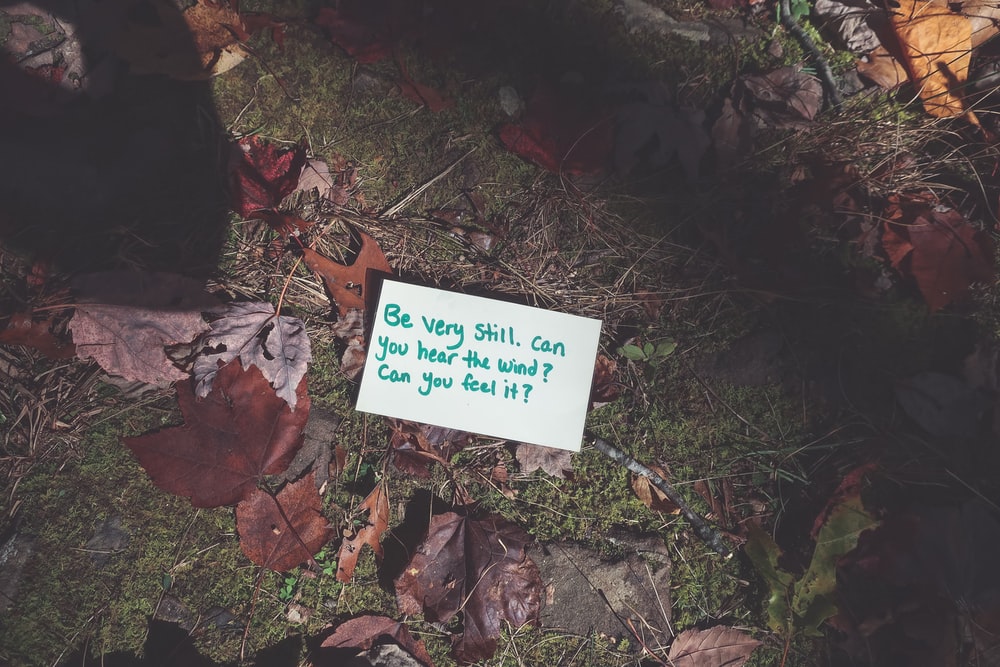 Be very still. Can
you hear the wind?
Can you feel it?